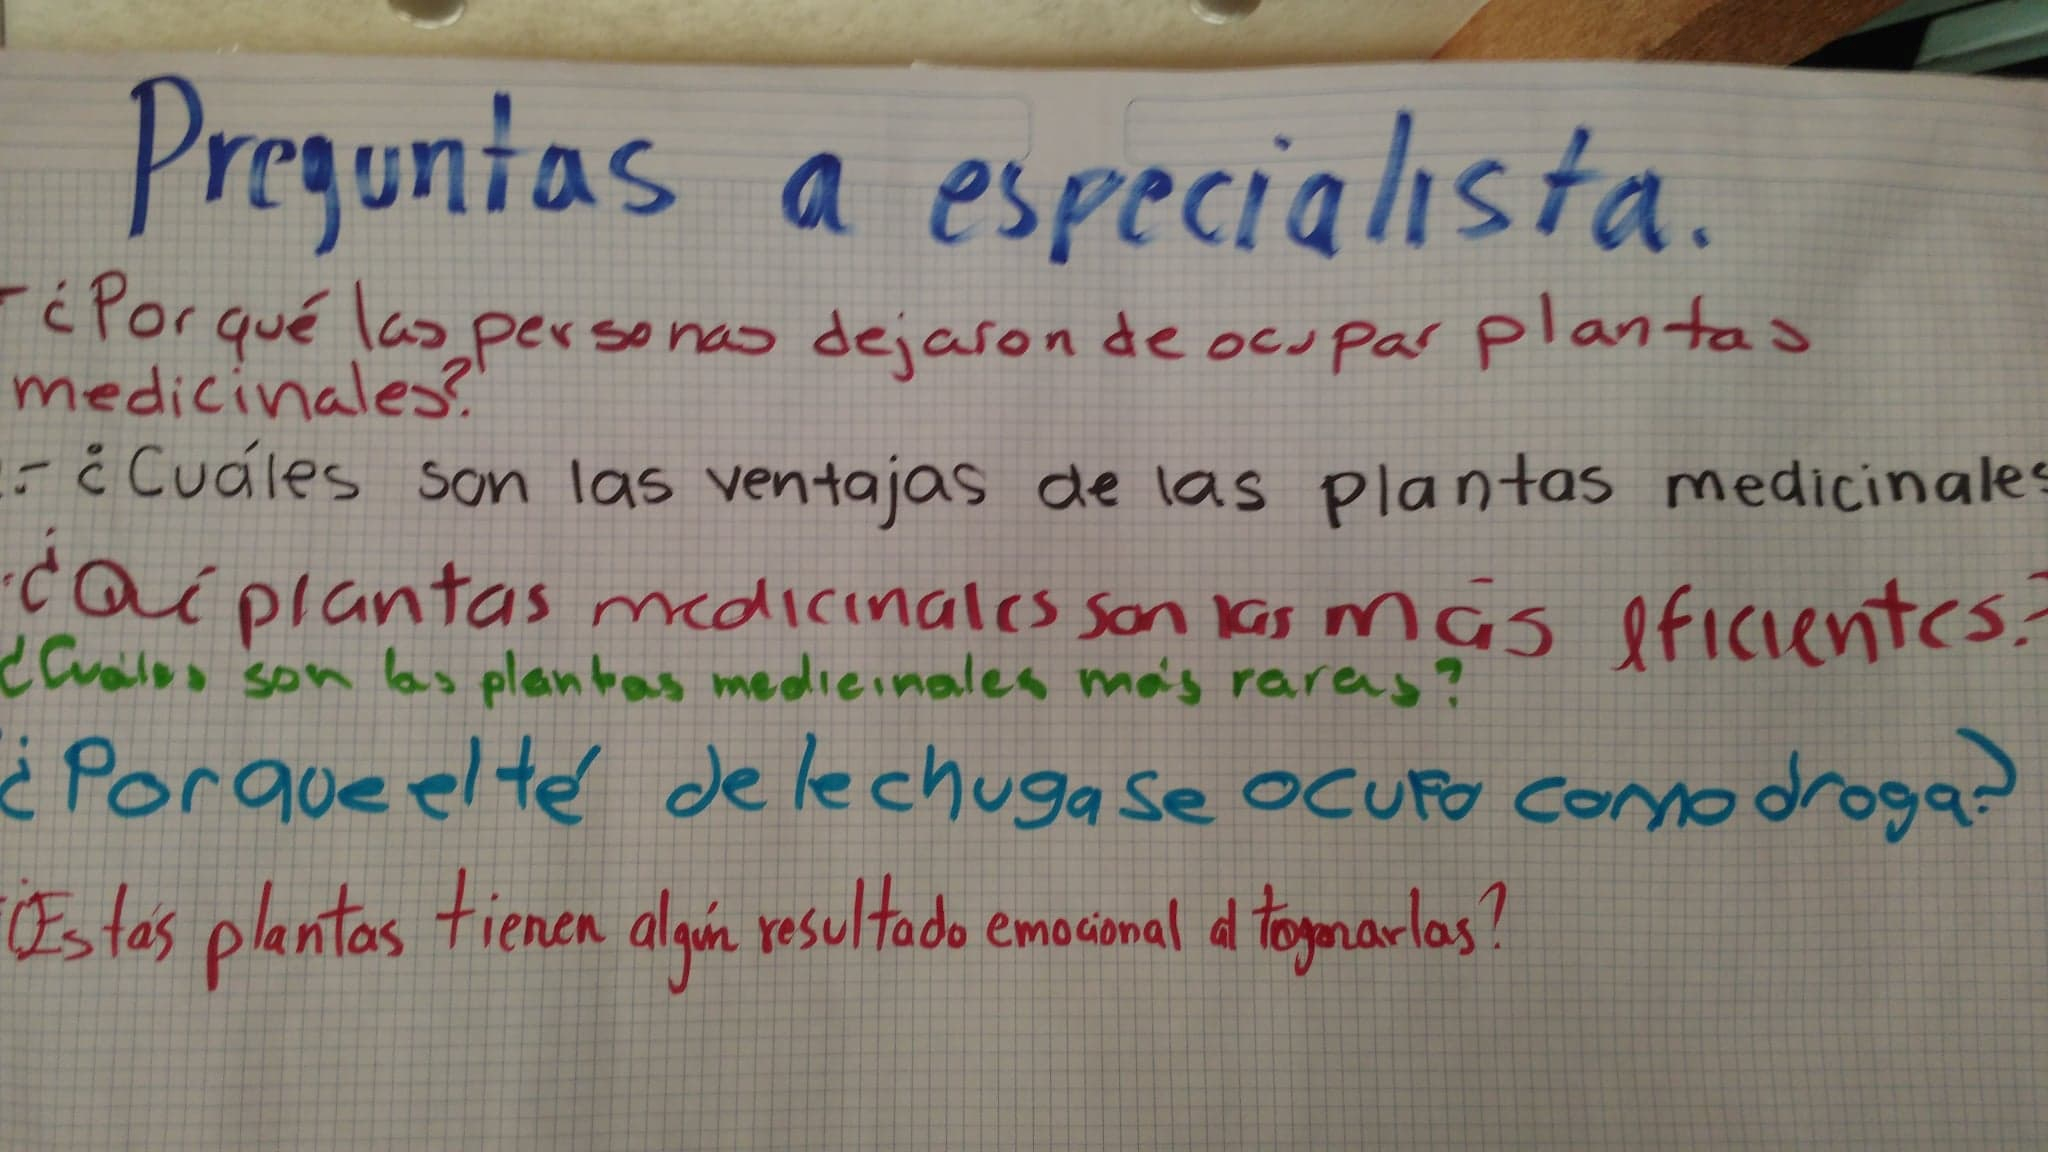 Preguntas a especialista.
- ¿Por qué las personas dejaron de ocupar plantas
medicinales?
.- ¿Cuáles son las ventajas de las plantas medicinales
¿Qué plantas medicinales son las más eficientes?
¿Cuáles son las plantas medicinales más raras?
¿Por que el té de lechuga se ocupo como droga?
¿Estás plantas tienen algún resultado emocional al